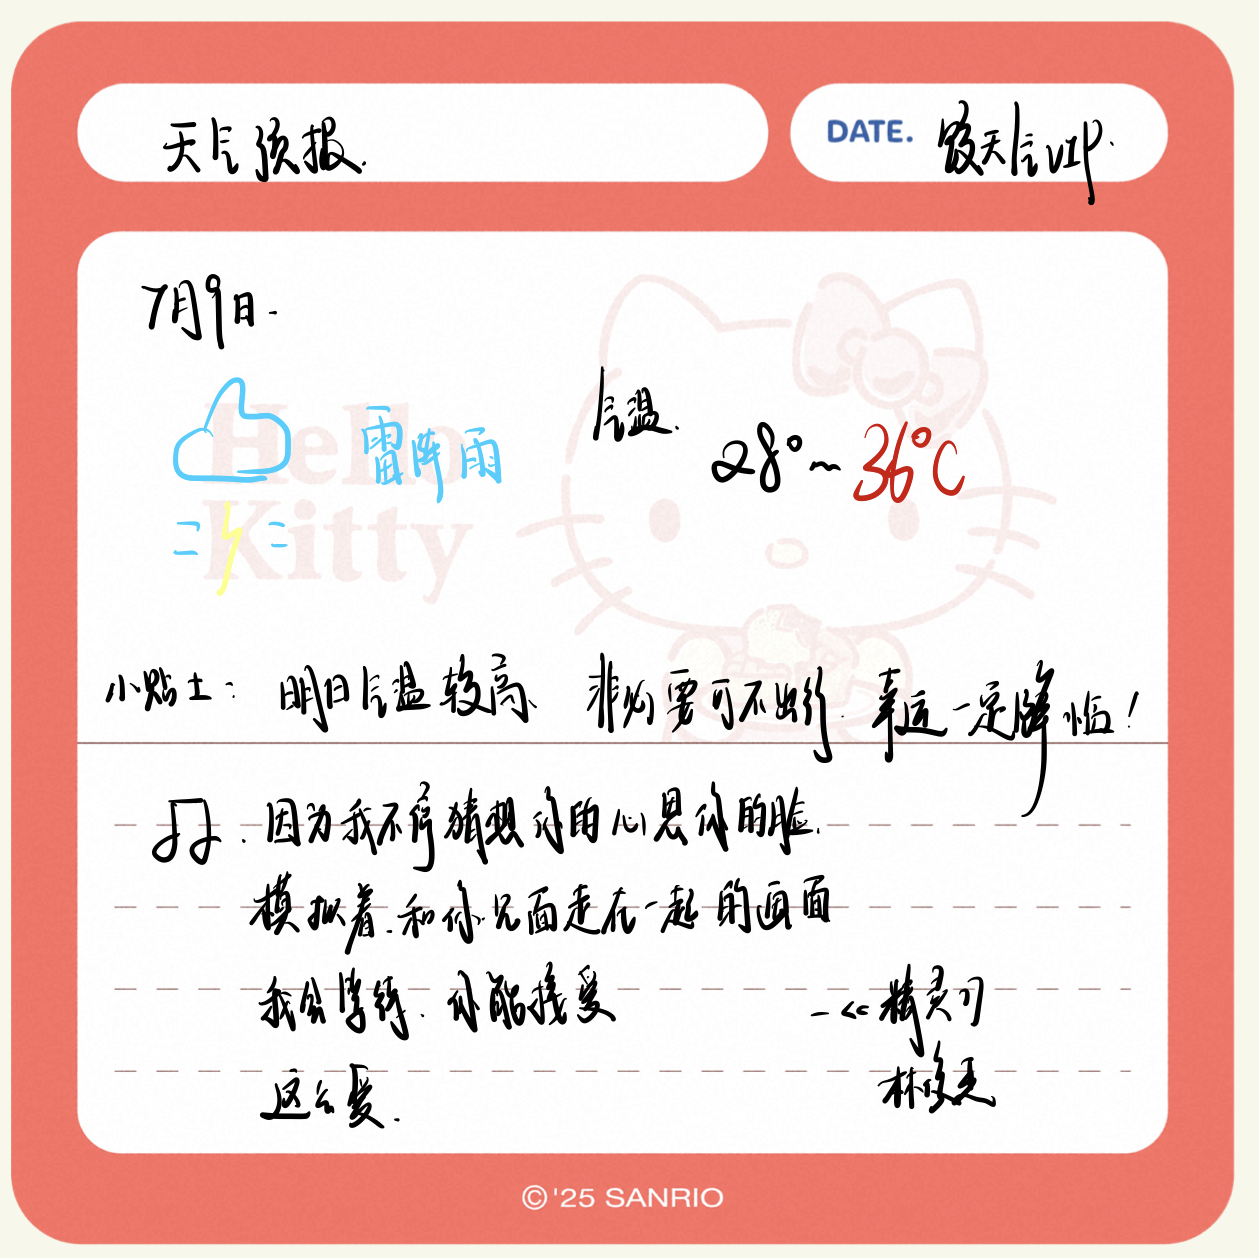 天气预报.
DATE. 天气VIP.
7月9日.
Hello
Kitty
雷阵雨
气温.
28°~36℃
小贴士: 明日气温较高、非必要可不出行. 幸运一定降临!
因为我不停猜想你的心思你的脸.
模拟着.和你见面走在一起的画面
我会学练. 你能接受 -《精灵》
这么爱. 林俊杰
©'25 SANRIO